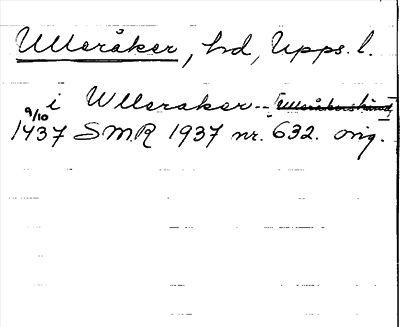 Ulleråker, hd, Upps. l.
i Wlleraker -- [Ulleråkershärad]
9/10
1437 SMR 1937 nr. 632. orig.